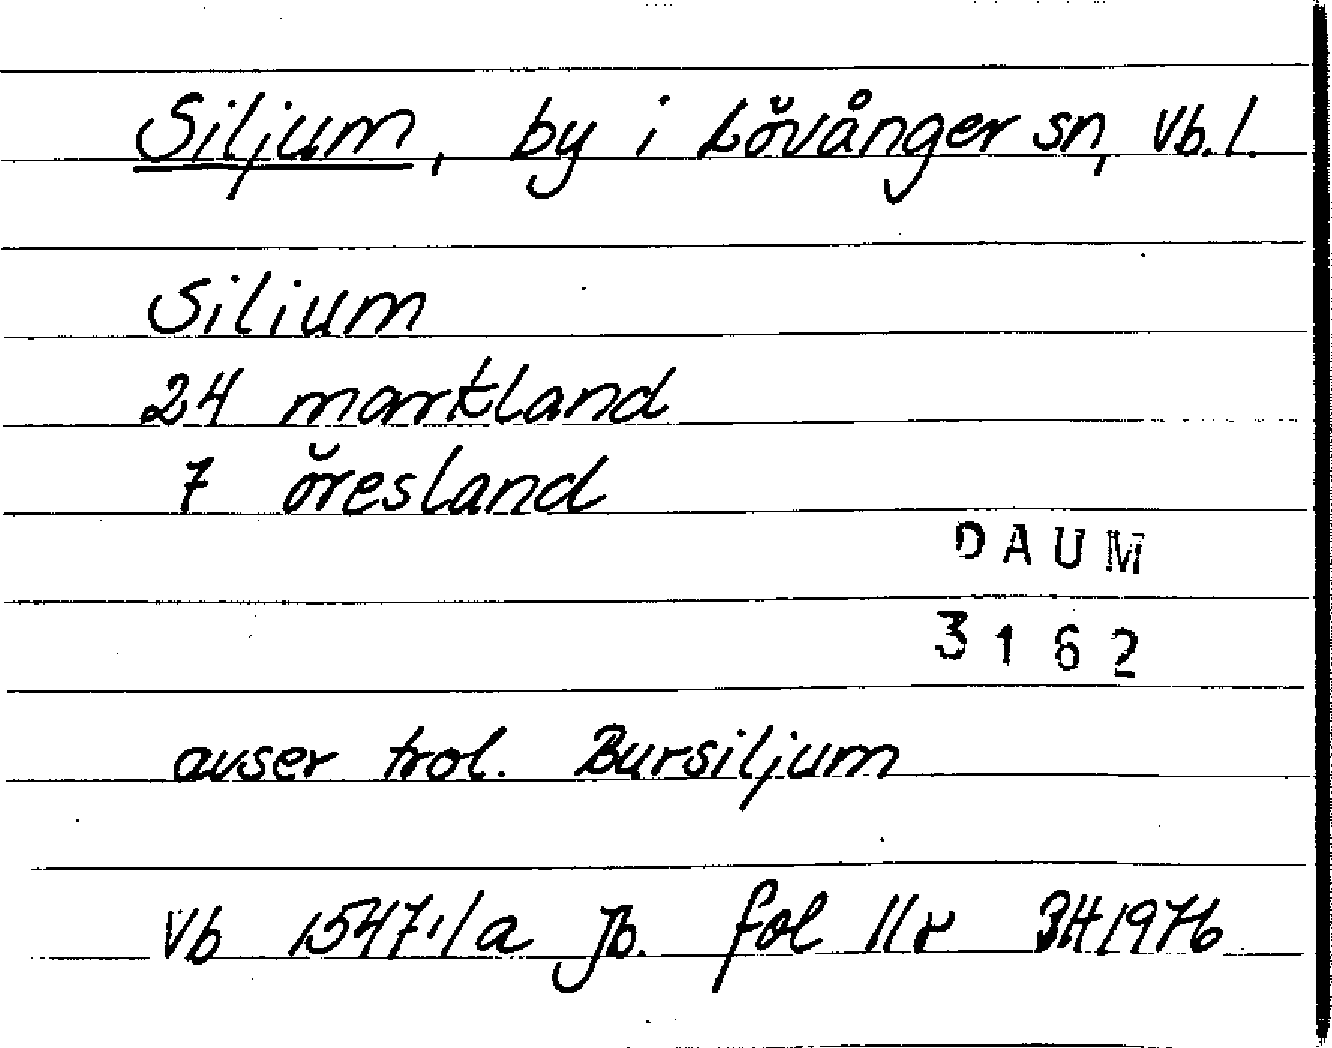 Siljum, by i Lövånger sn, Vb.l.
Silium
24 markland
7 öresland
DAUM
3162
avser trol. Bursiljum
Vb 1547:1a Jb. fol 11r BH 1976